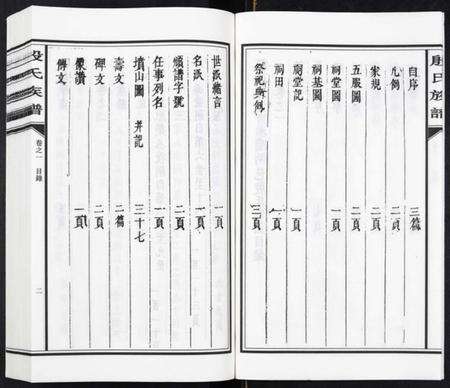 殷氏族譜
自序 三篇
凡例 二頁
家規 二頁
五服圖 二頁
祠堂圖 一頁
祠基圖
祠堂記 一頁
祠田 一頁
祭祀 三頁
世派總言 一頁
名派 一頁
領譜字號 二頁
任事列名 一頁
墳山圖 并記 三十七
壽文 二篇
碑文 二頁
像讚 一頁
傳文
殷氏族譜
卷之一 目錄
二